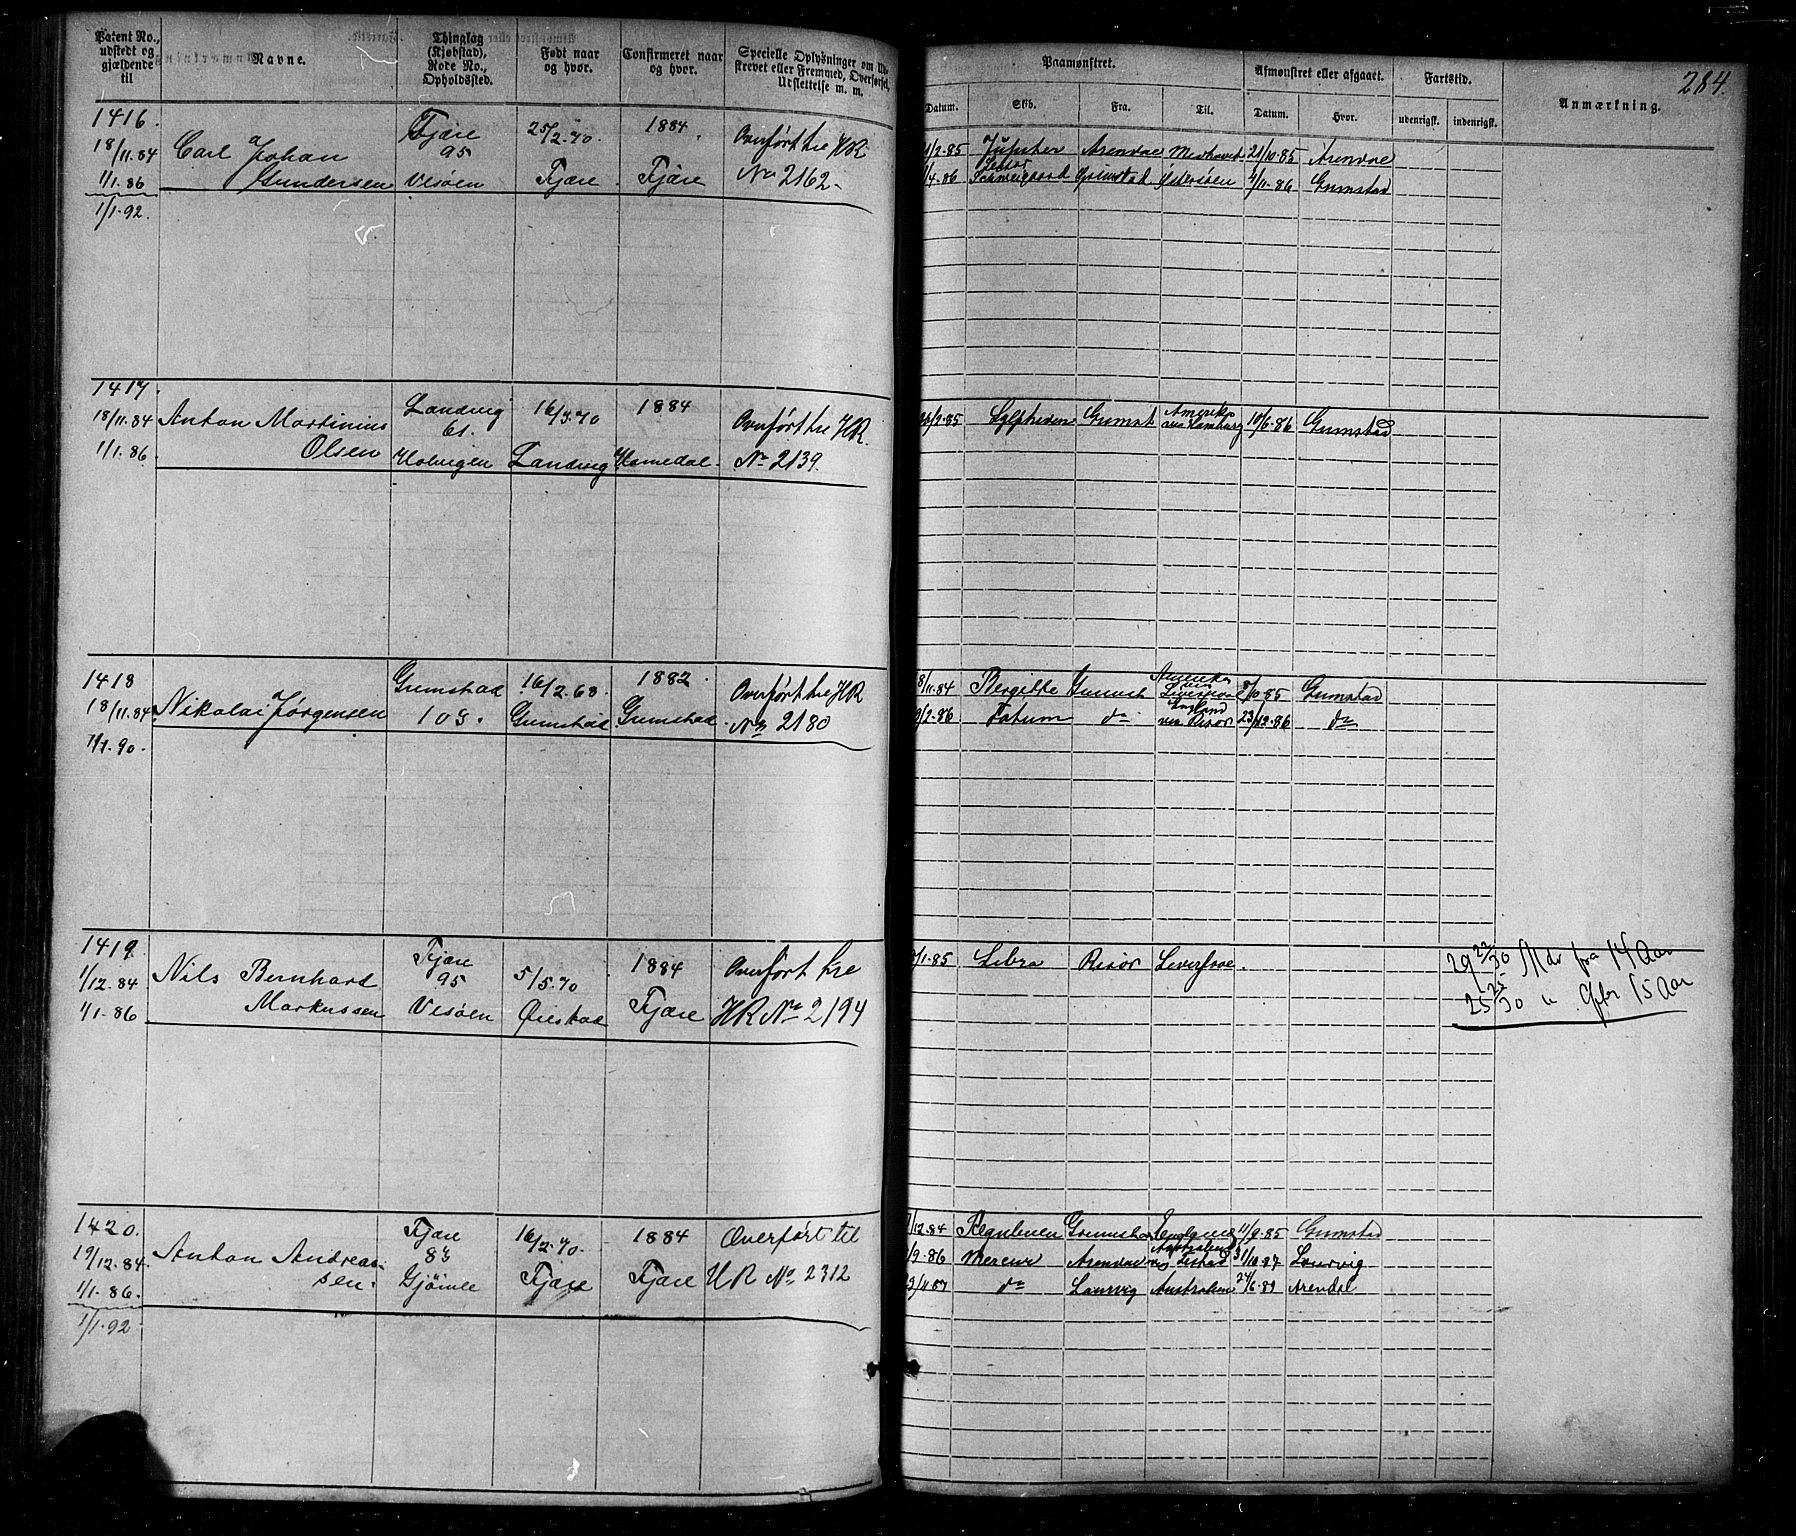 284.
Patent No., udstedt og gjældende til
Navne.
Thinglag (Kjøbstad), Rode No., Opholdssted.
Født naar og hvor.
Confirmeret naar og hvor.
Specielle Oplysninger om Ud-
strevet eller Fremmed, Overførsel,
Udslettelse m. m.
Paamønstret.
Afmønstret eller afgaaet.
Fartstid.
Anmærkning.
Datum. Skib. Fra. Til. Datum. Hvor. udenrigsk. indenrigsk.
1416.
18/11.84
1/1.86
1/1.92.
Carl Johan
Gundersen
Fjære
95
Vesøen
25/2.70
Fjære
1884.
Fjære
Overført til HR
No 2162.
1/2.85 Jupiter Arendal 21/10.85 Arendal
/4.86 Schweigaard Grimstad Østersøen /11.86 Grimstad
1417.
18/11.84
1/1.86
Anton Martinius
Olsen
Landvig
61.
Holvigen
16/3.70
Landvig
1884
Homedal.
Overført til HR.
No 2139.
/2.85 Sylphiden Grimst Amerika
via Hamburg 10/6.86 Grimstad
1418
18/11.84
1/1.90.
Nikolai Jørgensen
Grimstad
103.
16/2.68
Grimstad
1882
Grimstad
Overført til HR
No 2180
8/11.84 Bergitte Grimst Amerika
via
Liverpool /10.85 Grimstad
/2.86 Fatum do England
via Risør 23/12.86 do
1419
1/12.84
1/1.86
Nils Bernhard
Markussen
Fjære
95
Vesøen
5/5.70
Øiestad
1884
Fjære
Overført til
HR No 2194
/1.85 Libra Risør Liverpool.
29 27/30 Mdr fra 14 Aar
25 25/30 " efter 15 Aar
1420.
19/12.84.
1/1.86.
1/1.92.
Anton Andreas-
sen.
Fjære
83
Gjømle
16/2.70.
Fjære
1884
Fjære
Overført til
HR No 2312
/12.84 Regulever Grimstad England 11/9.85 Grimstad
/9.86 Mercur Arendal Australien
via 31/10.87 Laurvig
/11.87 do Laurvig Australien 24/6.89 Arendal